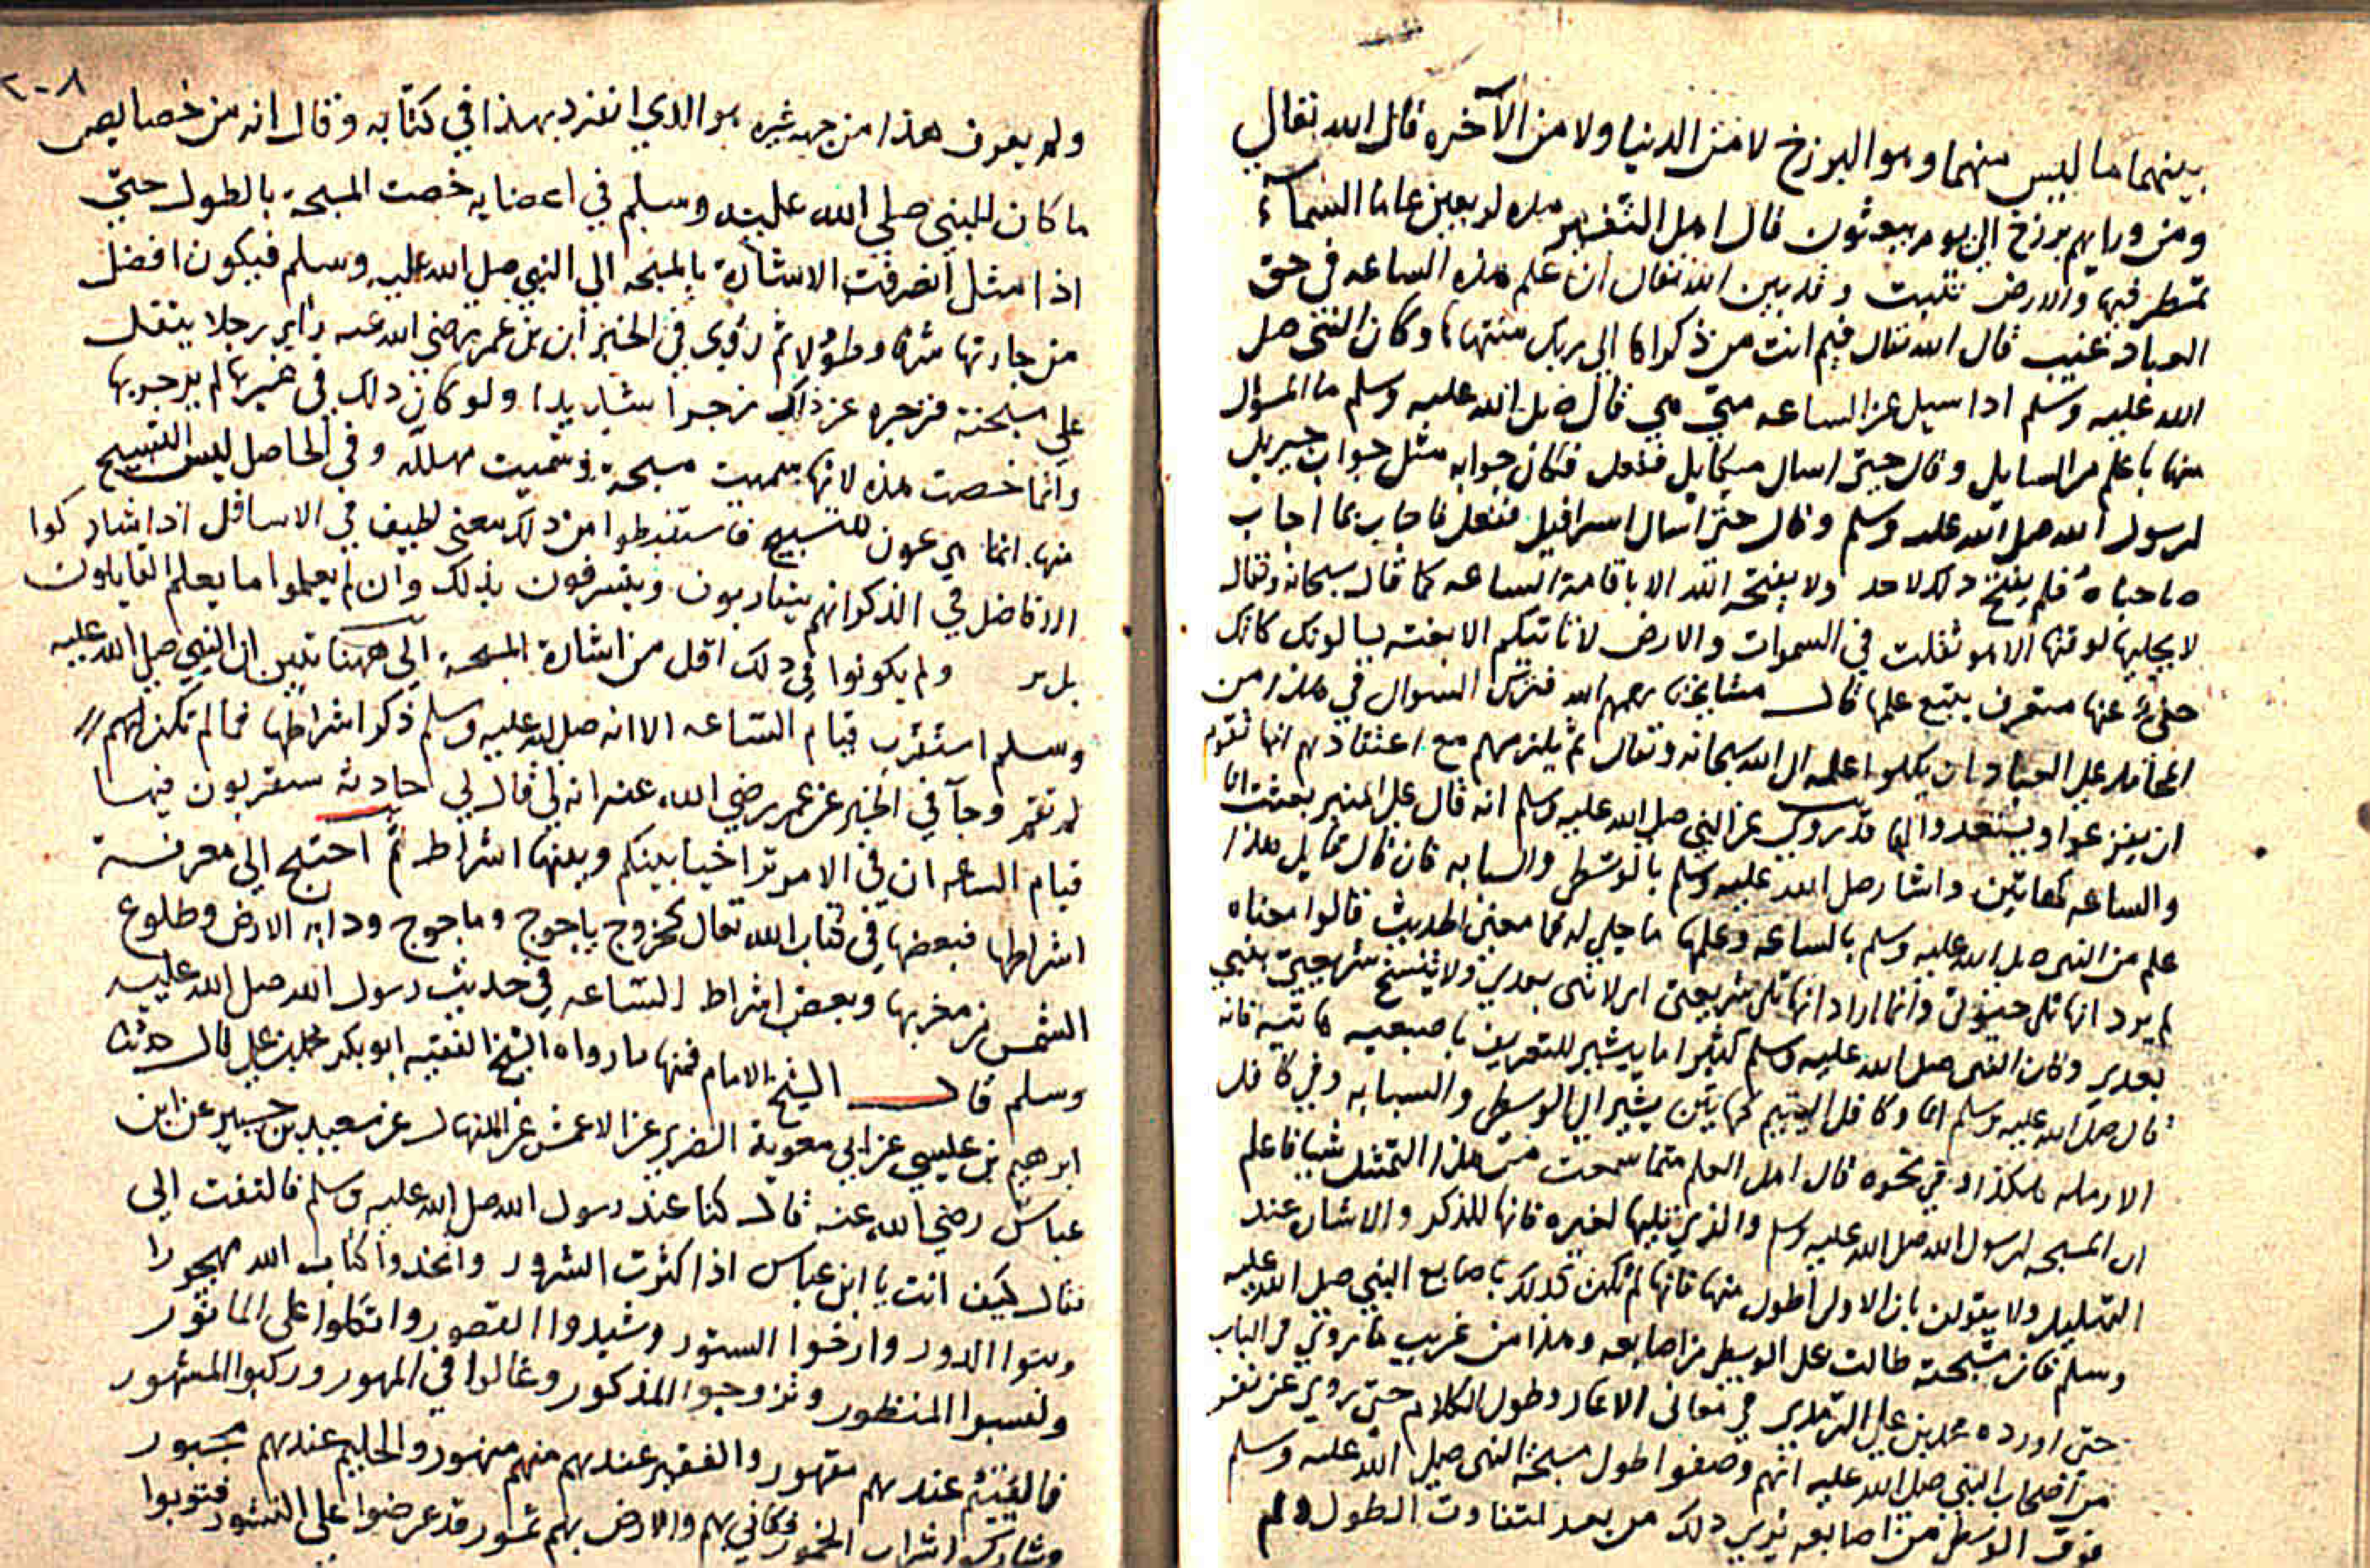 بينهما ما ليس منهما وهو البرزخ لا من الدنيا ولا من الآخره قال الله تعالي
ومن ورايهم برزخ الي يوم يبعثون قال اهل التفسير هذه اربعين عاما السمآء
تمطر فيها والارض تنبت وقد بين الله تعالى ان علم هذه الساعه في حق
العباد غيب قال الله تعالى فيم انت من ذكراها الي ربك منتهاها وكان النبي صلى
الله عليه وسلم اذا سيل عن الساعه متي هي قال صلى الله عليه وسلم ما المسؤل
عنها باعلم من السايل وقال حتى اسال ميكايل ففعل فكان جوابه مثل جواب جبريل
لرسول الله صلى الله عليه وسلم وقال حتى اسال اسرافيل ففعل فاجاب بما اجاب
صاحباه فلم يفتح ذلك لاحد ولا يفتحه الله الا باقامة الساعه كما قال سبحانه وتعالى
لا يجليها لوقتها الا هو ثقلت في السموات والارض لا تاتيكم الا بغته يسالونك كانك
حفي عنها متعرف يتبع علمها قال مشايخنا رحمهم الله فترك السوال في هذا من
العباد ان يكلوا علمه الى الله سبحانه وتعالى ثم يلزمهم مع اعتقادهم انها تقوم
ان يفزعوا ويستعدوا لها قد روي عن النبي صلى الله عليه وسلم انه قال على المنبر بعثت انا
والساعه كهاتين واشار صلى الله عليه وسلم بالوسطى والسبابه فان قال قايل هذا
علم من النبي صلى الله عليه وسلم بالساعه وعلمها ما جلي له فما معنى الحديث قالوا معناه
لم يرد انها تلى حينونتى وانما اراد انها تلى شريعتى اي لا نبى بعدي ولا ينسخ شريعتي بنبي
بعدي وكان النبى صلى الله عليه وسلم كثيرا ما يشير للتعريف باصبعيه كاتيه فانه
قال صلى الله عليه وسلم انا وكافل اليتيم كهاتين يشير الى الوسطى والسبابه وفي كافل
الارمله هكذا وفي نحوه قال اهل العلم متى ما سمعت من هذا التمثيل شيا فاعلم
ان المسبحه لرسول الله صلى الله عليه وسلم والذي يليها لغيره فانها للذكر والاشاره عند
التهليل ولا يقولن بان الاولى اطول منها فانها لم تكن كذلك باصابع النبي صلى الله عليه
وسلم فان مسبحته طالت على الوسطى من اصابعه وهذا من غريب ما روي في الباب
حتى اورده محمد بن علي الترمذي في معانى الاخبار وطول الكلام حتى روي عن نفر
من اصحاب النبي صلى الله عليه انهم وصفوا طول مسبحة النبى صلى الله عليه وسلم
فوق الوسطى من اصابعه يري ذلك من بعد لتفاوت الطول ولم
٢٠٨
ولم يعرف هذا من جهه غيره هو الدي انفرد بهذا في كتابه وقال انه من خصايص
ما كان للنبي صلي الله عليه وسلم في اعضايه خصت المسبحة بالطول حتي
اذا مثل انصرفت الاشارة بالمسبحه الي النبي صلى الله عليه وسلم فيكون افضل
من جارتها شرفا وطولا ثم روي في الخبر ان بن عمر رضي الله عنه رأي رجلا يتفل
علي مسبحته فزجره عن ذلك زجرا شديدا ولو كان ذلك في غيرها لم يزجر بها
وانما خصت هذه لانها سميت مسبحة وسميت مهللة وفي الحاصل ليس التسبيح
منها انما هي عون للتسبيح فاستنبطوا من ذلك معنى لطيف في الاسافل اذا شاركوا
الافاضل في الذكر انهم يثابون ويشرفون بذلك وان لم يعلموا ما يعلم القايلون
ولم يكونوا في ذلك اقل من اشارة المسبحة الى ههنا تبين ان النبي صلى الله عليه
وسلم استقرب قيام الساعه الا انه صلى الله عليه وسلم ذكر اشراطها فما لم تكن لهم
لم تقم وجآ في الخبر عن عمر رضي الله عنه انه لي قال لي حادثة ستقربون فيها
قيام الساعه ان في الامر تراخيا بينكم وبينها اشراط ثم احتيج الي معرفة
اشراطها فبعضها في كتاب الله تعالى كخروج ياجوج وماجوج ودابة الارض وطلوع
الشمس من مغربها وبعض اشراط الساعه في حديث رسول الله صلى الله عليه
وسلم قال الشيخ الامام فمنها ما رواه الشيخ الفقيه ابو بكر محمد بن علي قال حدثنا
ابرهيم بن عيسي عن ابي معوية الضرير عن الاعمش عن المنهال عن سعيد بن جبير عن ابن
عباس رضي الله عنه قال كنا عند رسول الله صلى الله عليه وسلم فالتفت الي
فقال كيف انت يا ابن عباس اذا كثرت الشرور واتخذوا كتاب الله مهجورا
وبنوا الدور وارخوا الستور وشيدوا القصور واتكلوا على الماثور
ونسبوا المنظور وتزوجوا المذكور وغالوا في المهور وركبوا المشهور
فالغني عندهم مقهور والفقير عندهم منهم منهور والحليم عندهم مجبور
وشارك اشراب الخمور وكاني بهم والارض بهم تمور قد عرضوا على النشور فتوبوا